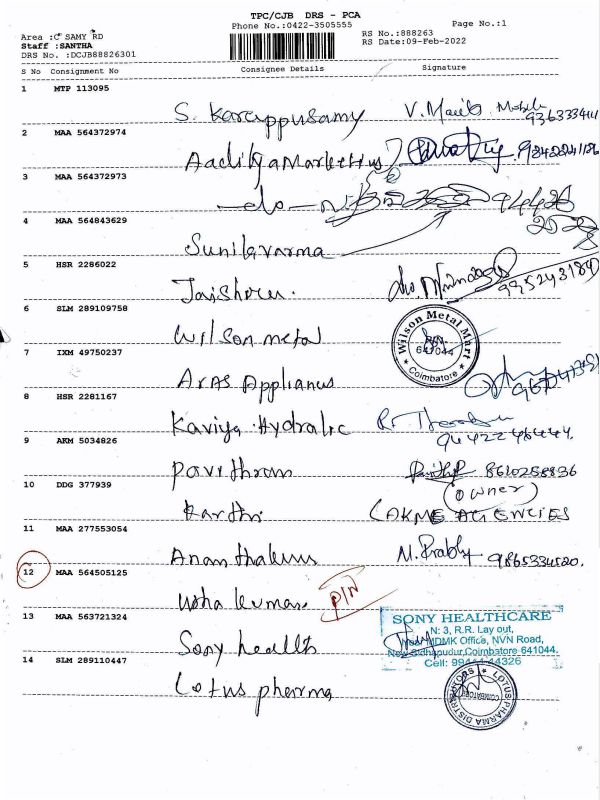 TPC/CJB DRS - PCA
Phone No.:0422-3505555
Page No.:1
Area :C SAMY RD
Staff :SANTHA
DRS No. :DCJB88826301
RS No.:888263
RS Date:09-Feb-2022
S No Consignment No Consignee Details Signature
1 MTP 113095
S. Karuppusamy
2 MAA 564372974
Aaditya Marketting
3 MAA 564372973
-do-
4 MAA 564843629
Sunilavarma
5 HSR 2286022
Jaishree.
6 SLM 289109758
Wilson metal
Wilson Metal Mart
PIN-
641044
Coimbatore
7 IXM 49750237
Aras Appliances
8 HSR 2281167
Kaviya Hydralic
9 AKM 5034826
Pavithran
(owner)
10 DDG 377939
Karthi LAKME AGENCIES
11 MAA 277553054
M. Prabhu 9865334520.
12 MAA 564505125
Usha kumar PIN
13 MAA 563721324
Sony health
SONY HEALTHCARE
N: 3, R.R. Lay out,
MDMK Office, NVN Road,
New Sidhapudur,Coimbatore 641044.
Cell: 44326
14 SLM 289110447
Lotus pharma
LOTUS PHARMA DISTRIBUTORS
COIMBATORE